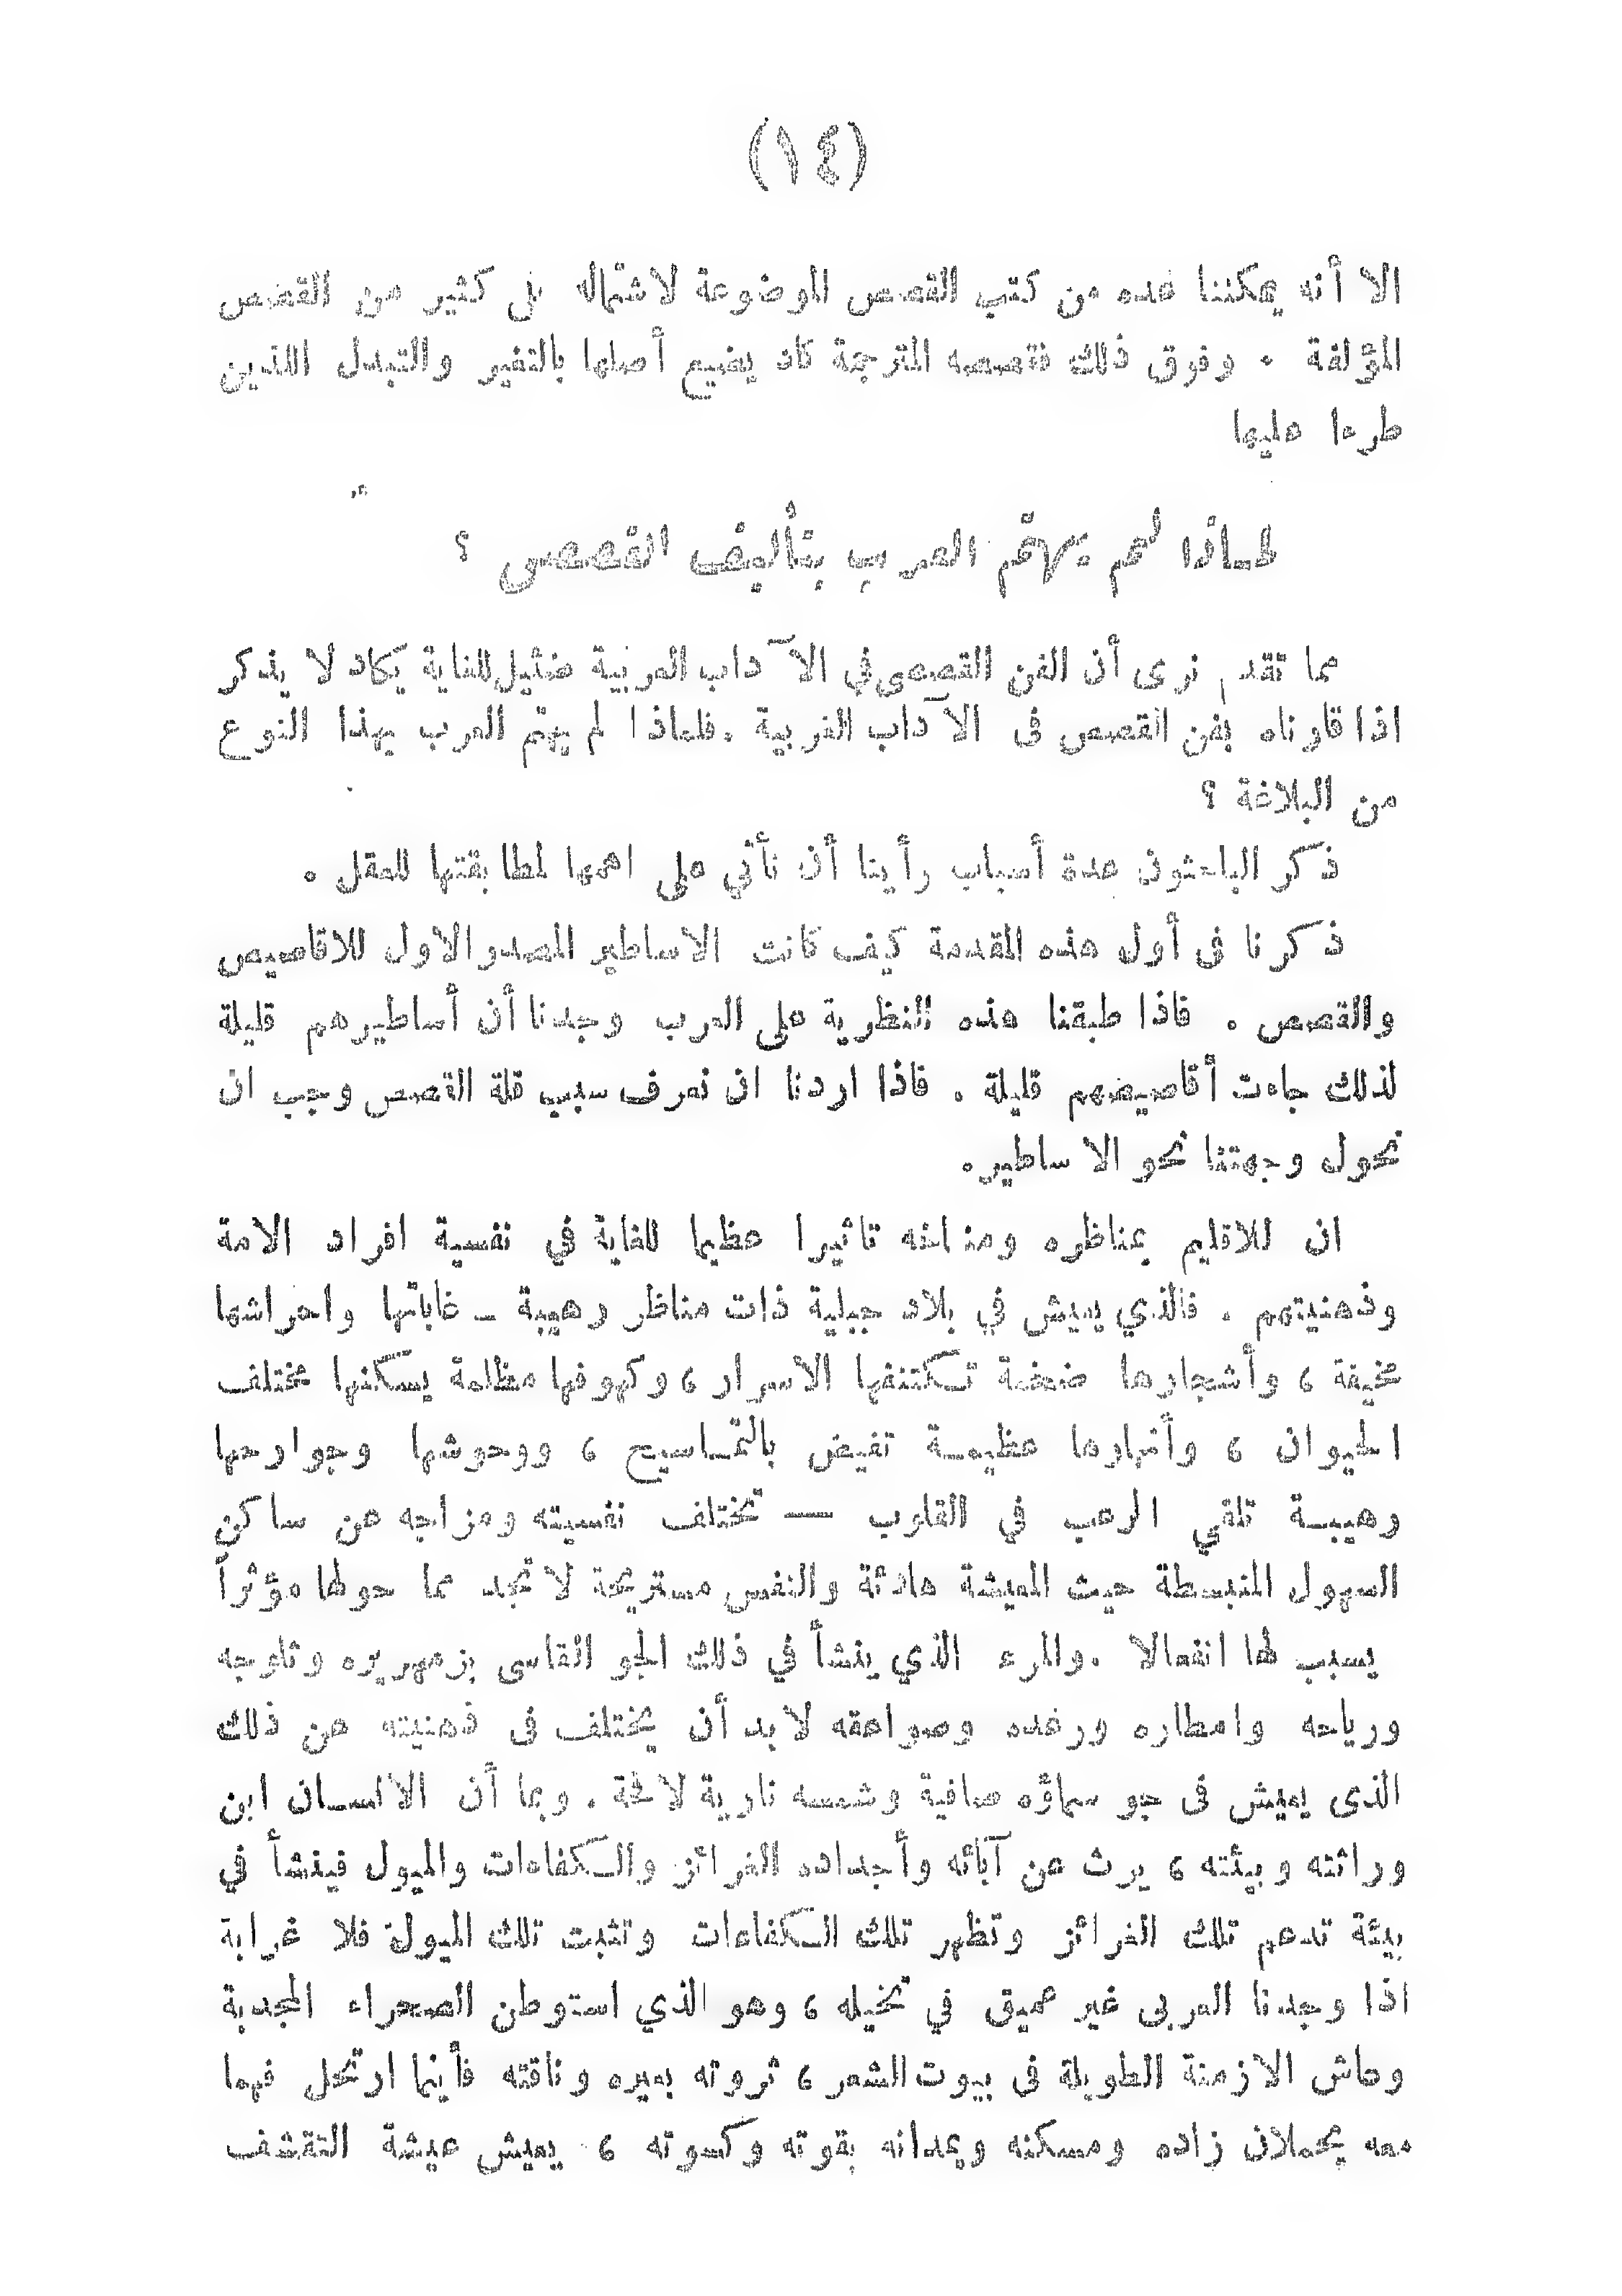 (١٤)
الا أنه يمكننا عده من كتب القصص الموضوعة لاشتماله على كثير من القصص
المؤلفة . وفوق ذلك فقصصه المترجمة كاد يضيع أصلها بالتغير والتبدل اللذين
طرءا عليها
لماذا لم يهتم العرب بتأليف القصص ؟
مما تقدم نرى أن الفن القصصي في الآداب العربية ضئيل للغاية يكاد لا يذكر
اذا قارناه بفن القصص فى الآداب الغربية . فلماذا لم يهتم العرب بهذا النوع
من البلاغة ؟
ذكر الباحثون عدة أسباب رأينا أن نأتي على اهمها لمطابقتها للعقل .
ذكرنا فى أول هذه المقدمة كيف كانت الاساطير المصدر الاول للاقاصيص
والقصص . فاذا طبقنا هذه النظرية على العرب وجدنا أن أساطيرهم قليلة
لذلك جاءت أقاصيصهم قليلة . فاذا اردنا ان نعرف سبب قلة القصص وجب ان
نحول وجهتنا نحو الاساطير.
ان للاقليم بمناظره ومناخه تاثيرا عظيما للغاية في نفسية افراد الامة
وذهنيتهم . فالذي يعيش في بلاد جبلية ذات مناظر رهيبة ـ غاباتها واحراشها
مخيفة ، وأشجارها ضخمة تكتنفها الاسرار ، وكهوفها مظلمة يسكنها مختلف
الحيوان ، وأنهارها عظيمة تفيض بالتماسيح ، ووحوشها وجوارحها
رهيبة تلقي الرعب في القلوب — تختلف نفسيته ومزاجه عن ساكن
السهول المنبسطة حيث المعيشة هادئة والنفس مستريحة لا تجد مما حولها مؤثراً
يسبب لها انفعالا . والمرء الذي ينشأ في ذلك الجو القاسى بزمهريره وثلوجه
ورياحه وامطاره ورعده وصواعقه لا بد أن يختلف فى ذهنيته عن ذلك
الذى يعيش فى جو سماؤه صافية وشمسه نارية لافحة . وبما أن الانسان ابن
وراثته وبيئته ، يرث عن آبائه وأجداده الغرائز والكفاءات والميول فينشأ في
بيئة تدعم تلك الغرائز وتظهر تلك الكفاءات وتثبت تلك الميول فلا غرابة
اذا وجدنا العربى غير عميق في تخيله ، وهو الذي استوطن الصحراء المجدبة
وعاش الازمنة الطويلة فى بيوت الشعر ، ثروته بعيره وناقته فأينما ارتحل فهما
معه يحملان زاده ومسكنه ويمدانه بقوته وكسوته ، يعيش عيشة التقشف